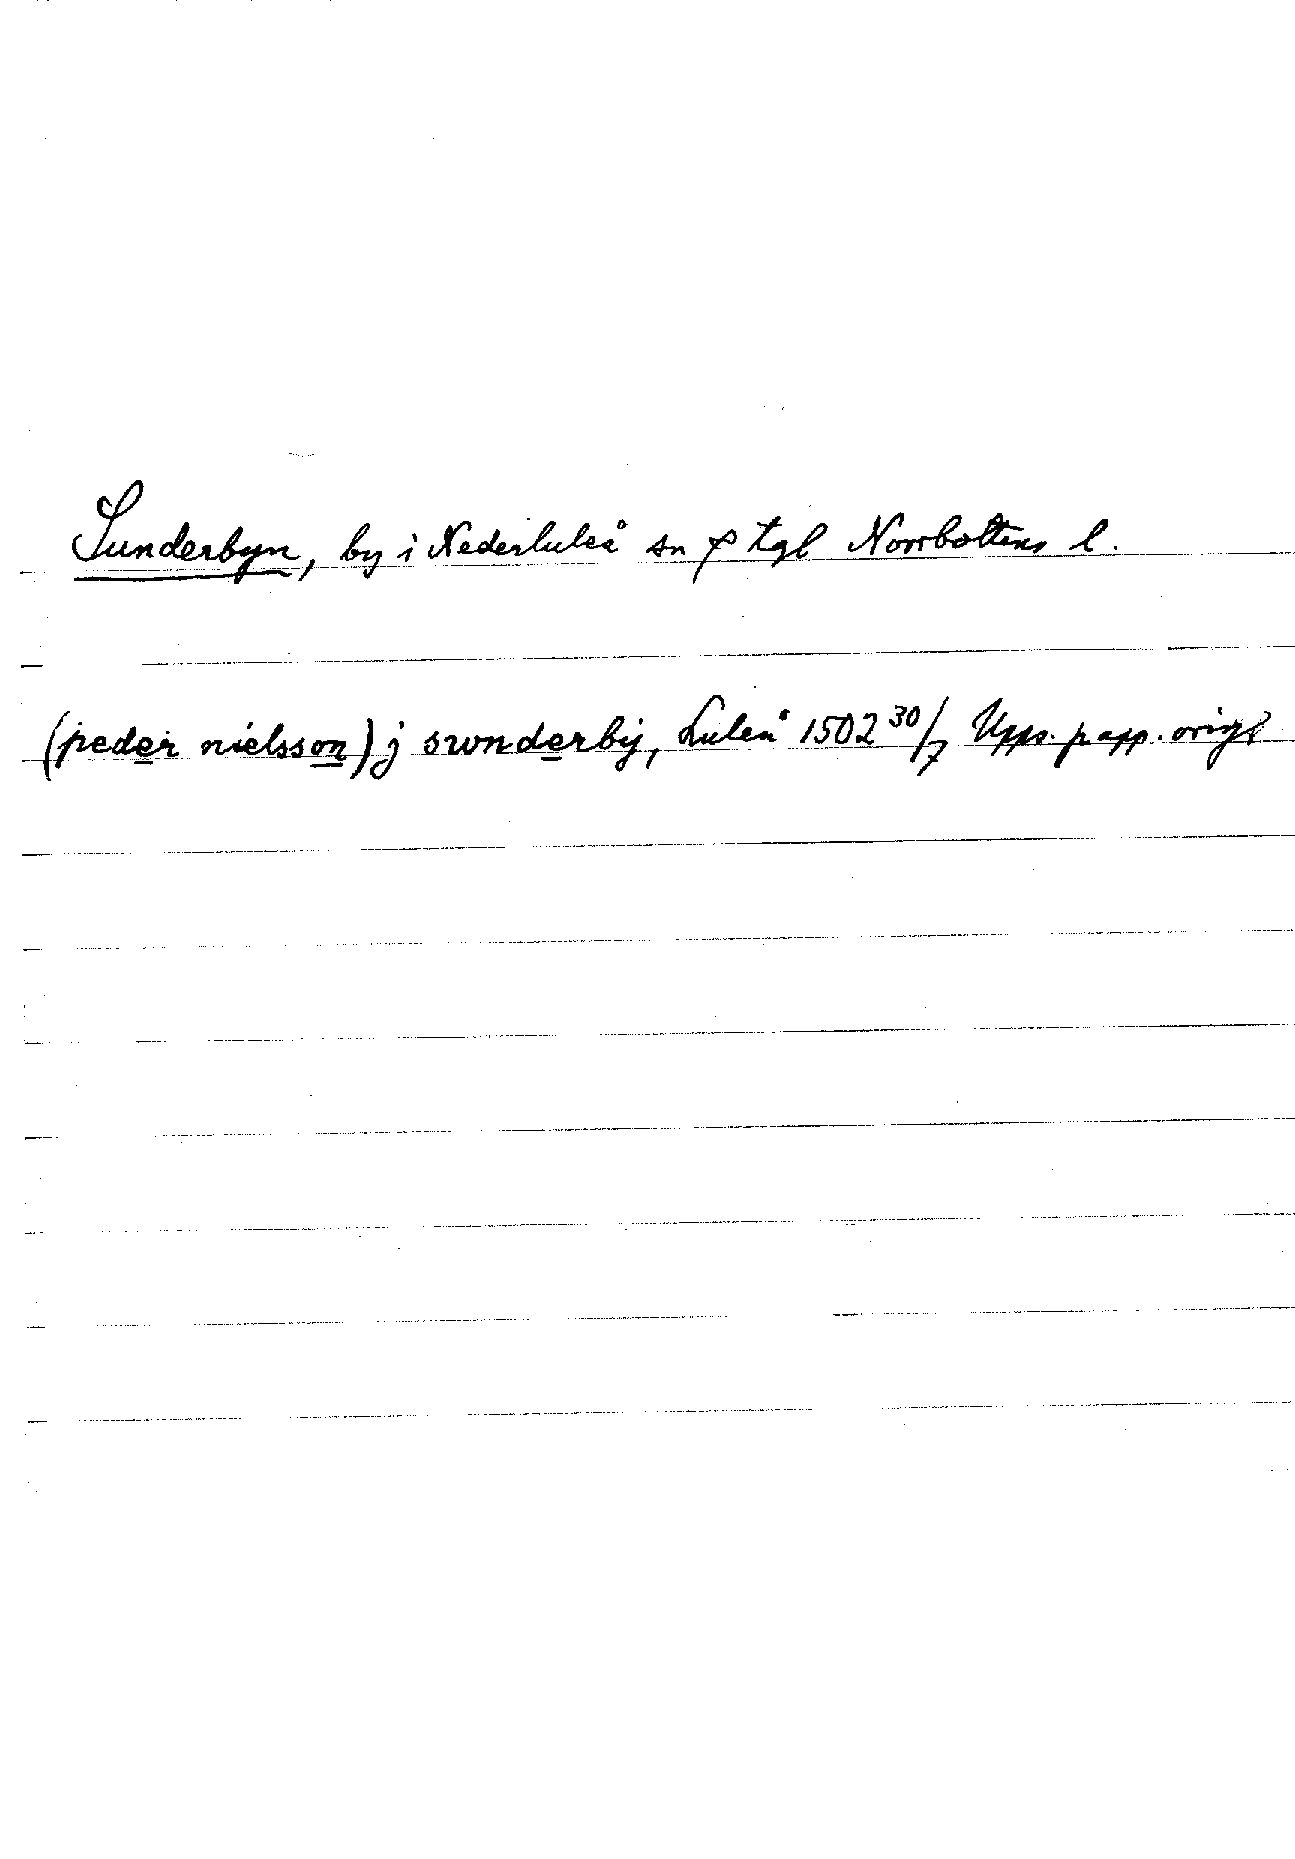 Sunderbyn, by i Nederluleå sn o tgl Norrbottens l.
(peder nielsson) j swnderbij, Luleå 1502 30/7 Upps. papp. origl